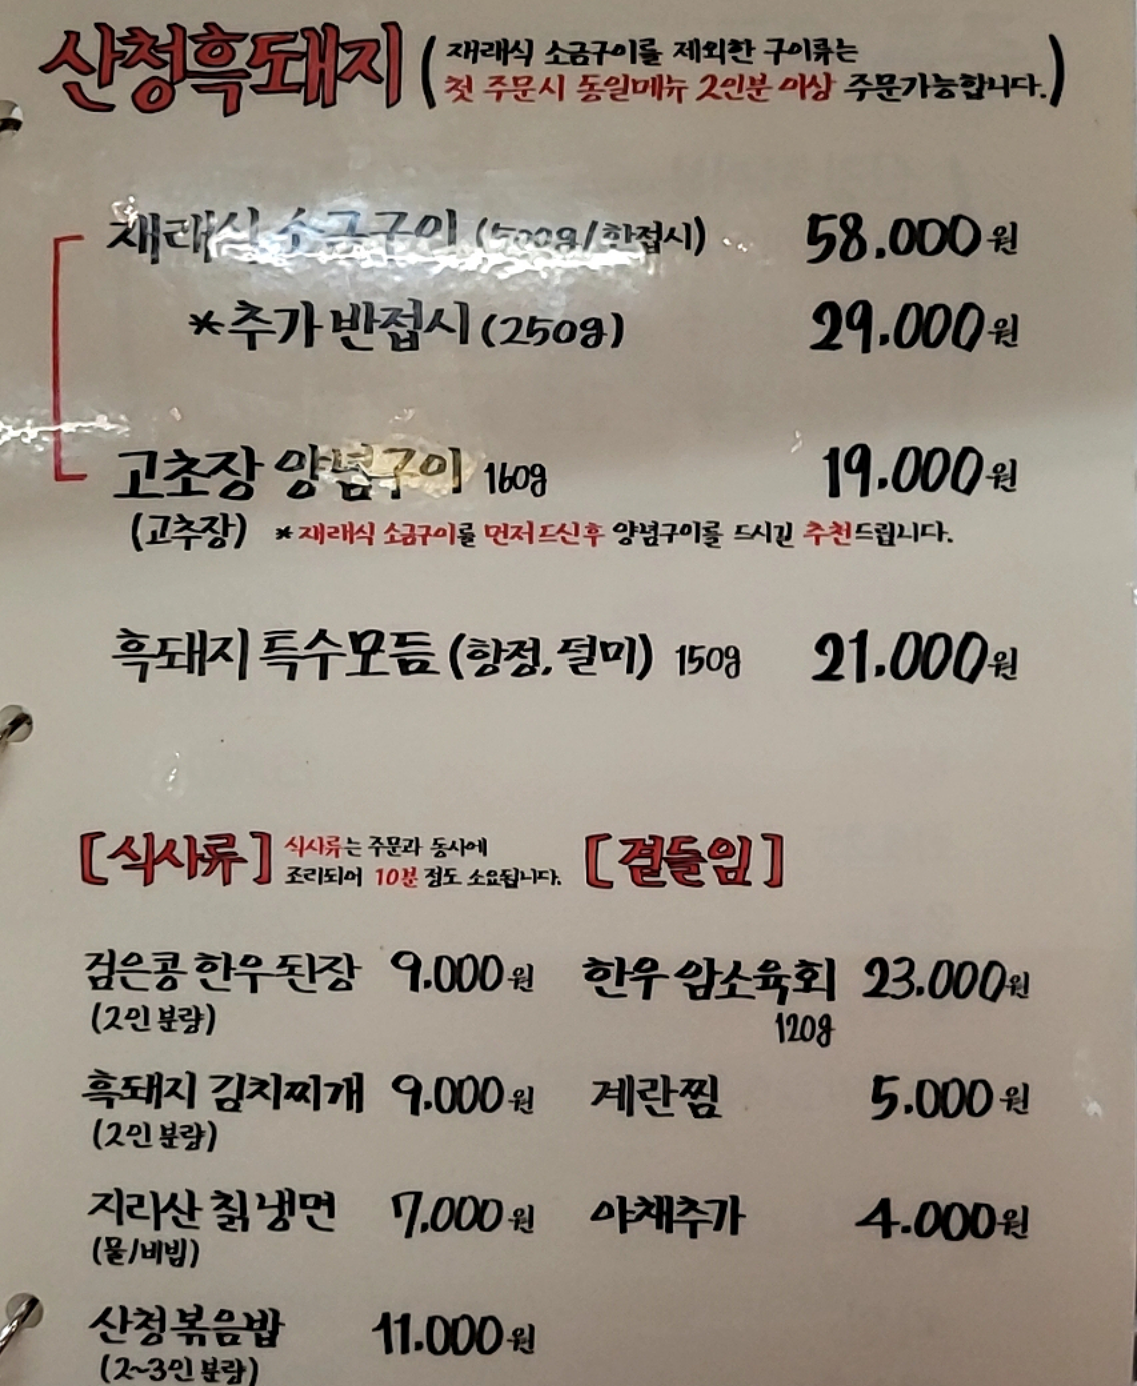 산청흑돼지 (재래식 소금구이를 제외한 구이류는
첫 주문시 동일메뉴 2인분 이상 주문가능합니다.)
재래식 소금구이 (500g/한접시) 58.000원
*추가 반접시 (250g) 29.000원
고초장 양념구이 160g 19.000원
(고추장) *재래식 소금구이를 먼저드신후 양념구이를 드시길 추천드립니다.
흑돼지 특수모듬 (항정,덜미) 150g 21.000원
[식사류] 식사류는 주문과 동시에
조리되어 10분 정도 소요됩니다.
검은콩 한우된장 9.000원
(2인 분량)
흑돼지 김치찌개 9.000원
(2인 분량)
지리산 칡냉면 7.000원
(물/비빔)
산청볶음밥 11.000원
(2~3인 분량)
[곁들임]
한우 암소육회 23.000원
120g
계란찜 5.000원
야채추가 4.000원